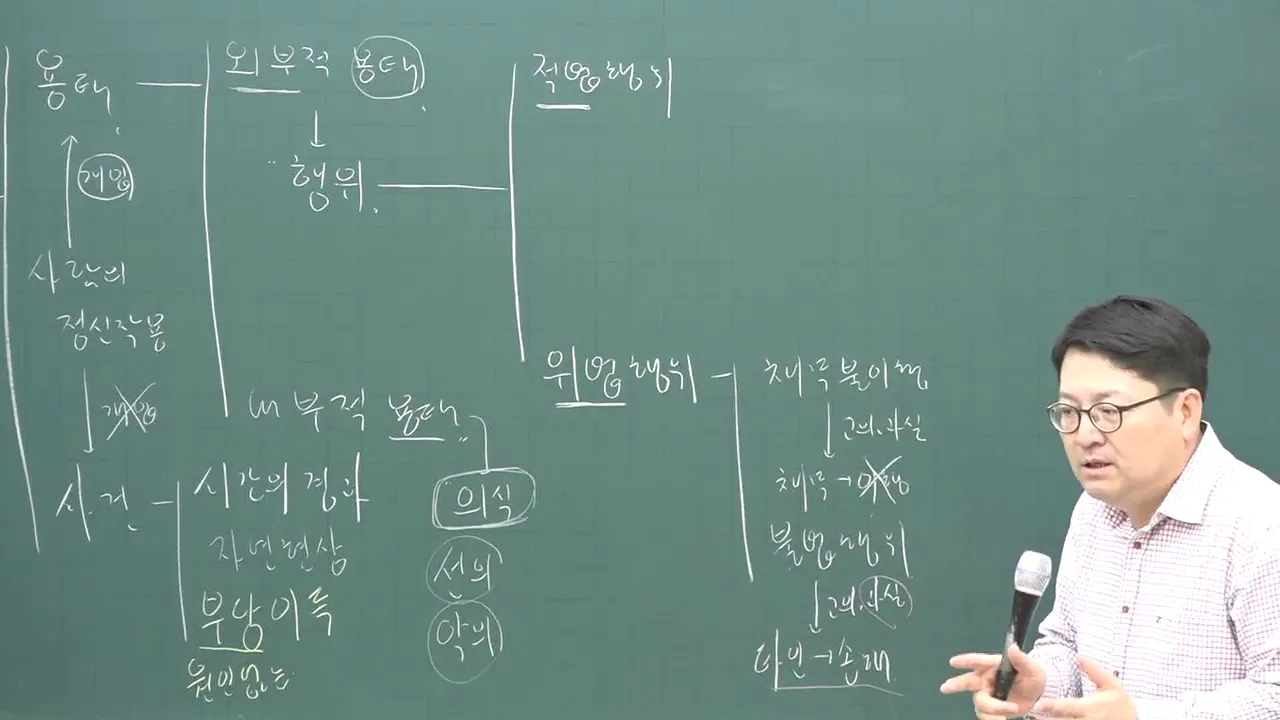 용태
개입
사람의
정신작용
개입
사건
외부적 용태
행위
내부적 용태
의식
선의
악의
시간의 경과
자연현상
부당이득
원인없는
적법행위
위법행위
채무불이행
고의.과실
채무→이행
불법행위
고의.과실
타인→손해